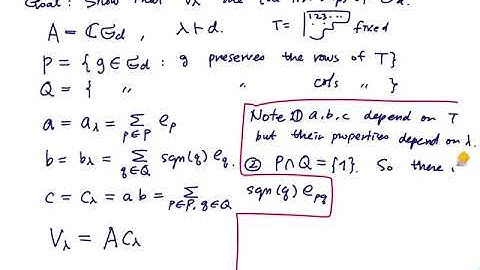 Goal: Show that Vλ are the irreps of 𝔖d.
A = ℂ𝔖d, λ ⊢ d. T = 123... fixed
P = {g ∈ 𝔖d : g preserves the rows of T}
Q = { " " cols " }
a = aλ = ∑p∈P ep
b = bλ = ∑q∈Q sgn(q) eq.
c = cλ = ab = ∑p∈P, q∈Q sgn(q) epq
Note ① a,b,c depend on T
but their properties depend on λ.
② P∩Q = {1}. So there i
Vλ = Acλ